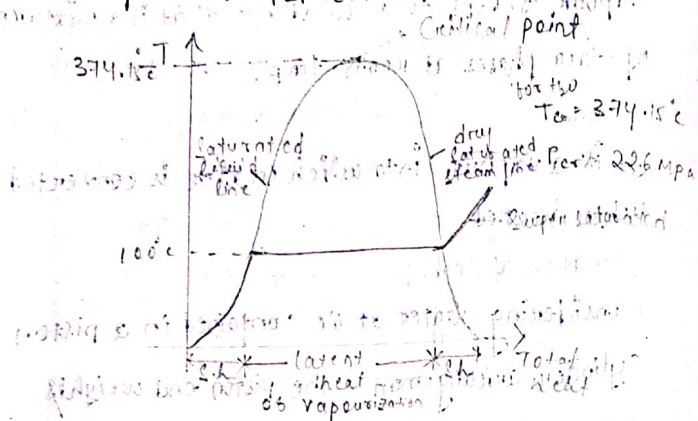 Critical point
T
374.15°c
for H2O
Tcr = 374.15°c
saturated
liquid
line
dry
saturated
steam line
Pcri = 22.6 Mpa
Super saturation
100°c
S.h
latent
heat
of vapourization
Sh
Total
heat